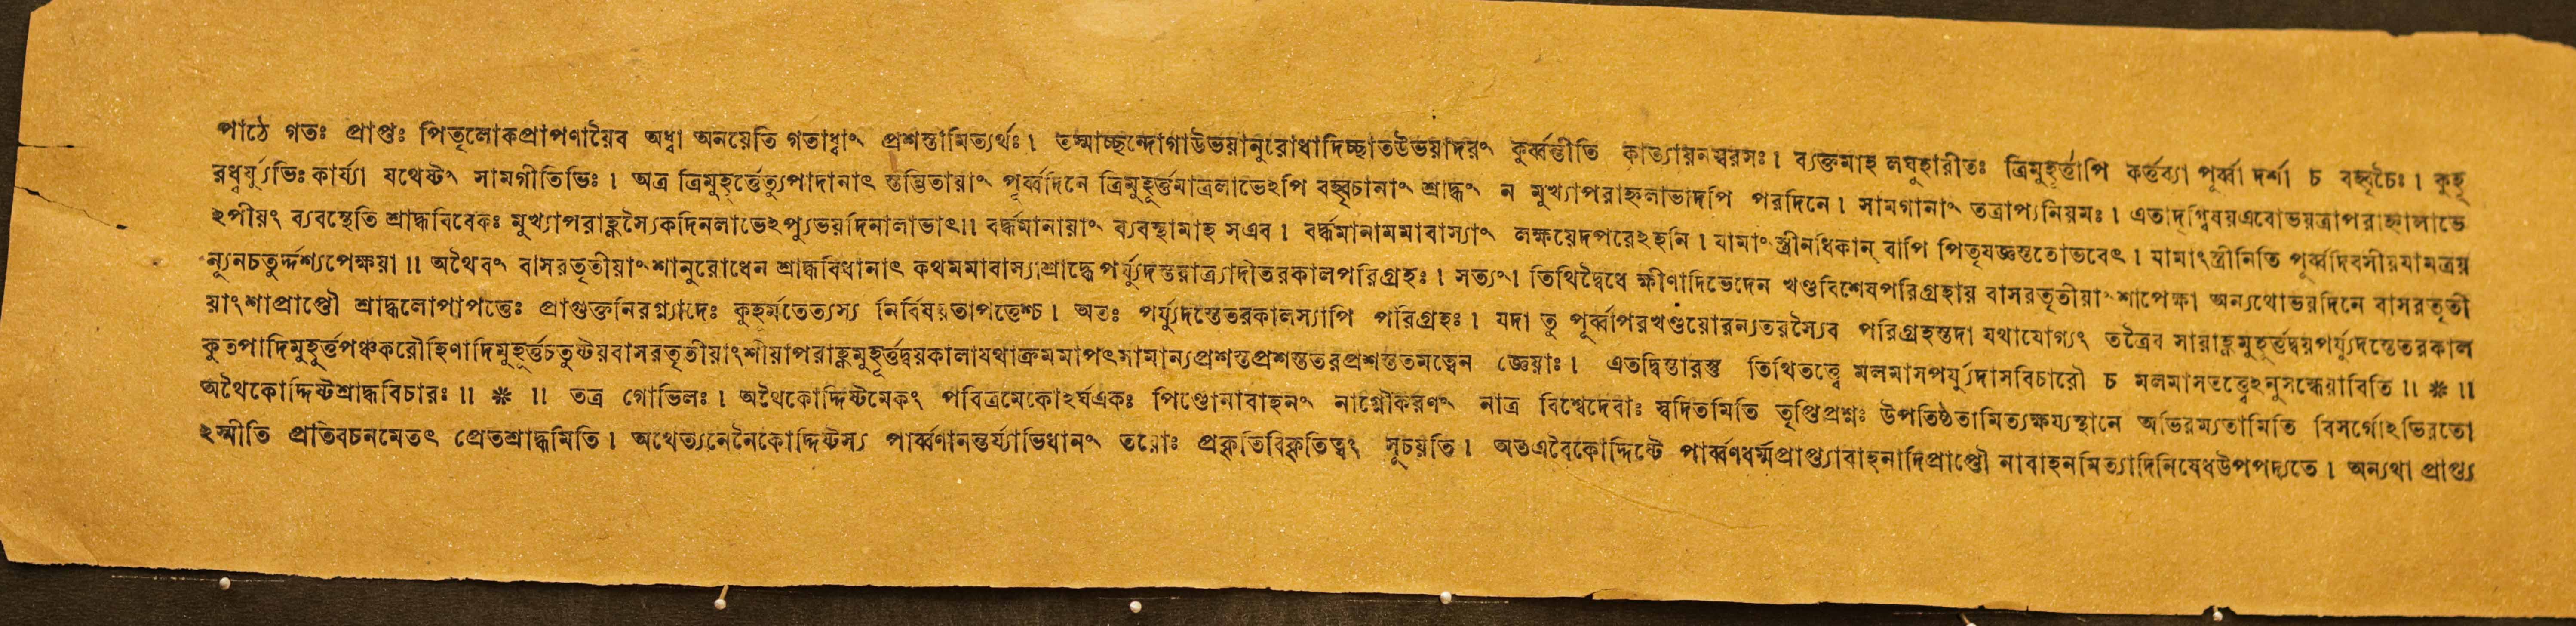 পাঠে গতঃ প্রাপ্তঃ পিতৃলোকপ্রাপণায়ৈব অধ্বা অনয়েতি গতাধ্বাং প্রশস্তামিত্যর্থঃ। তস্মাচ্ছন্দোগাউভয়ানুরোধাদিচ্ছাতউভয়াদরং কুর্ব্বন্তীতি কাত্যায়নস্বরসঃ। ব্যক্তমাহ লঘুহারীতঃ ত্রিমুহূর্ত্তাপি কর্ত্তব্যা পূর্ব্বা দর্শা চ বহ্বৃচৈঃ। কুহূ
রধ্বর্য্যুভিঃ কার্য্যা যথেষ্টং সামগীতিভিঃ। অত্র ত্রিমুহূর্ত্তেত্যুপাদানাৎ স্তম্ভিতায়াং পূর্ব্বদিনে ত্রিমুহূর্ত্তমাত্রলাভেঽপি বহ্বৃচানাং শ্রাদ্ধং ন মুখ্যাপরাহ্ণলাভাদপি পরদিনে। সামগানাং তত্রাপ্যনিয়মঃ। এতাদৃগ্বিষয়এবোভয়ত্রাপরাহ্ণালাভে
ঽপীয়ং ব্যবস্থেতি শ্রাদ্ধবিবেকঃ মুখ্যাপরাহ্ণস্যৈকদিনলাভেঽপ্যুভয়দিনালাভাৎ॥ বর্দ্ধমানায়াং ব্যবস্থামাহ সএব। বর্দ্ধমানামমাবাস্যাং লক্ষয়েদপরেঽহনি। যামাংস্ত্রীনধিকান্ বাপি পিতৃযজ্ঞস্ততোভবেৎ। যামাংস্ত্রীনিতি পূর্ব্বদিবসীয়যামত্রয়
ন্যূনচতুর্দ্দশ্যপেক্ষয়া॥ অথৈবং বাসরতৃতীয়াংশানুরোধেন শ্রাদ্ধবিধানাৎ কথমমাবাস্যাশ্রাদ্ধে পর্য্যুদস্তরাত্র্যাদীতরকালপরিগ্রহঃ। সত্যং। তিথিদ্বৈধে ক্ষীণাদিভেদেন খণ্ডবিশেষপরিগ্রহায় বাসরতৃতীয়াংশাপেক্ষা অন্যথোভয়দিনে বাসরতৃতী
য়াংশাপ্রাপ্তৌ শ্রাদ্ধলোপাপত্তেঃ প্রাগুক্তনিরগ্ন্যাদেঃ কুহূর্মতেত্যস্য নির্বিষয়তাপত্তেশ্চ। অতঃ পর্য্যুদস্তেতরকালস্যাপি পরিগ্রহঃ। যদা তু পূর্ব্বাপরখণ্ডয়োরন্যতরস্যৈব পরিগ্রহস্তদা যথাযোগ্যং তত্রৈব সায়াহ্ণমুহূর্ত্তদ্বয়পর্য্যুদস্তেতরকাল
কুতপাদিমুহূর্ত্তপঞ্চকরৌহিণাদিমুহূর্ত্তচতুষ্টয়বাসরতৃতীয়াংশীয়াপরাহ্ণমুহূর্ত্তদ্বয়কালাযথাক্রমমাপৎসামান্যপ্রশস্তপ্রশস্ততরপ্রশস্ততমত্বেন জ্ঞেয়াঃ। এতদ্বিস্তারস্তু তিথিতত্ত্বে মলমাসপর্য্যুদাসবিচারৌ চ মলমাসতত্ত্বেঽনুসন্ধেয়াবিতি॥ ❈ ॥
অথৈকোদ্দিষ্টশ্রাদ্ধবিচারঃ॥ ❈ ॥ তত্র গোভিলঃ। অথৈকোদ্দিষ্টমেকং পবিত্রমেকোঽর্ঘএকঃ পিণ্ডোনাবাহনং নাগ্নৌকরণং নাত্র বিশ্বেদেবাঃ স্বদিতমিতি তৃপ্তিপ্রশ্নঃ উপতিষ্ঠতামিত্যক্ষয্যস্থানে অভিরম্যতামিতি বিসর্গোঽভিরতো
ঽস্মীতি প্রতিবচনমেতৎ প্রেতশ্রাদ্ধমিতি। অথেত্যনেনৈকোদ্দিষ্টস্য পার্ব্বণানন্তর্য্যাভিধানং তয়োঃ প্রকৃতিবিকৃতিত্বং সূচয়তি। অতএবৈকোদ্দিষ্টে পার্ব্বণধর্ম্মপ্রাপ্ত্যাবাহনাদিপ্রাপ্তৌ নাবাহনমিত্যাদিনিষেধউপপদ্যতে। অন্যথা প্রাপ্ত্য